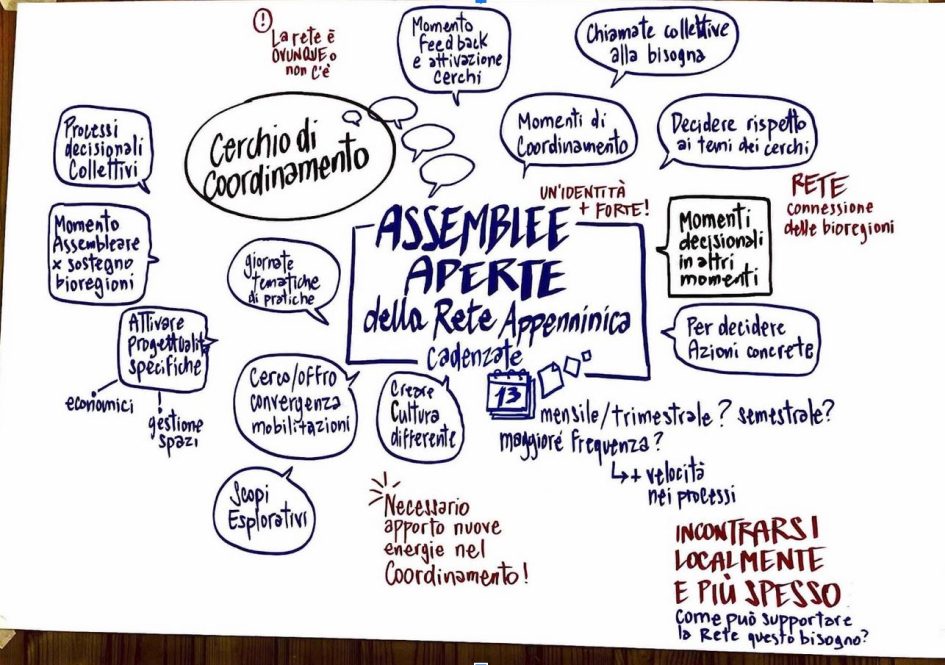 La rete è
OVUNQUE o
non c'è
Momento
Feedback
e attivazione
cerchi
Chiamate collettive
alla bisogna
Processi
decisionali
Collettivi
Cerchio di
Coordinamento
Momenti di
Coordinamento
Decidere rispetto
ai temi dei cerchi
UN'IDENTITÀ
+ FORTE!
RETE
connessione
delle bioregioni
Momento
Assembleare
x sostegno
bioregioni
giornate
tematiche
di pratiche
ASSEMBLEE
APERTE
della Rete Appenninica
cadenzate
Momenti
decisionali
in altri
momenti
Attivare
Progettualità
specifiche
economici
gestione
spazi
Cerco/offro
convergenza
mobilitazioni
Creare
Cultura
differente
13
Per decidere
Azioni concrete
mensile/trimestrale? semestrale?
maggiore frequenza?
↳ + velocità
nei processi
Scopi
Esplorativi
Necessario
apporto nuove
energie nel
Coordinamento!
INCONTRARSI
LOCALMENTE
E PIÙ SPESSO
Come può supportare
la Rete questo bisogno?